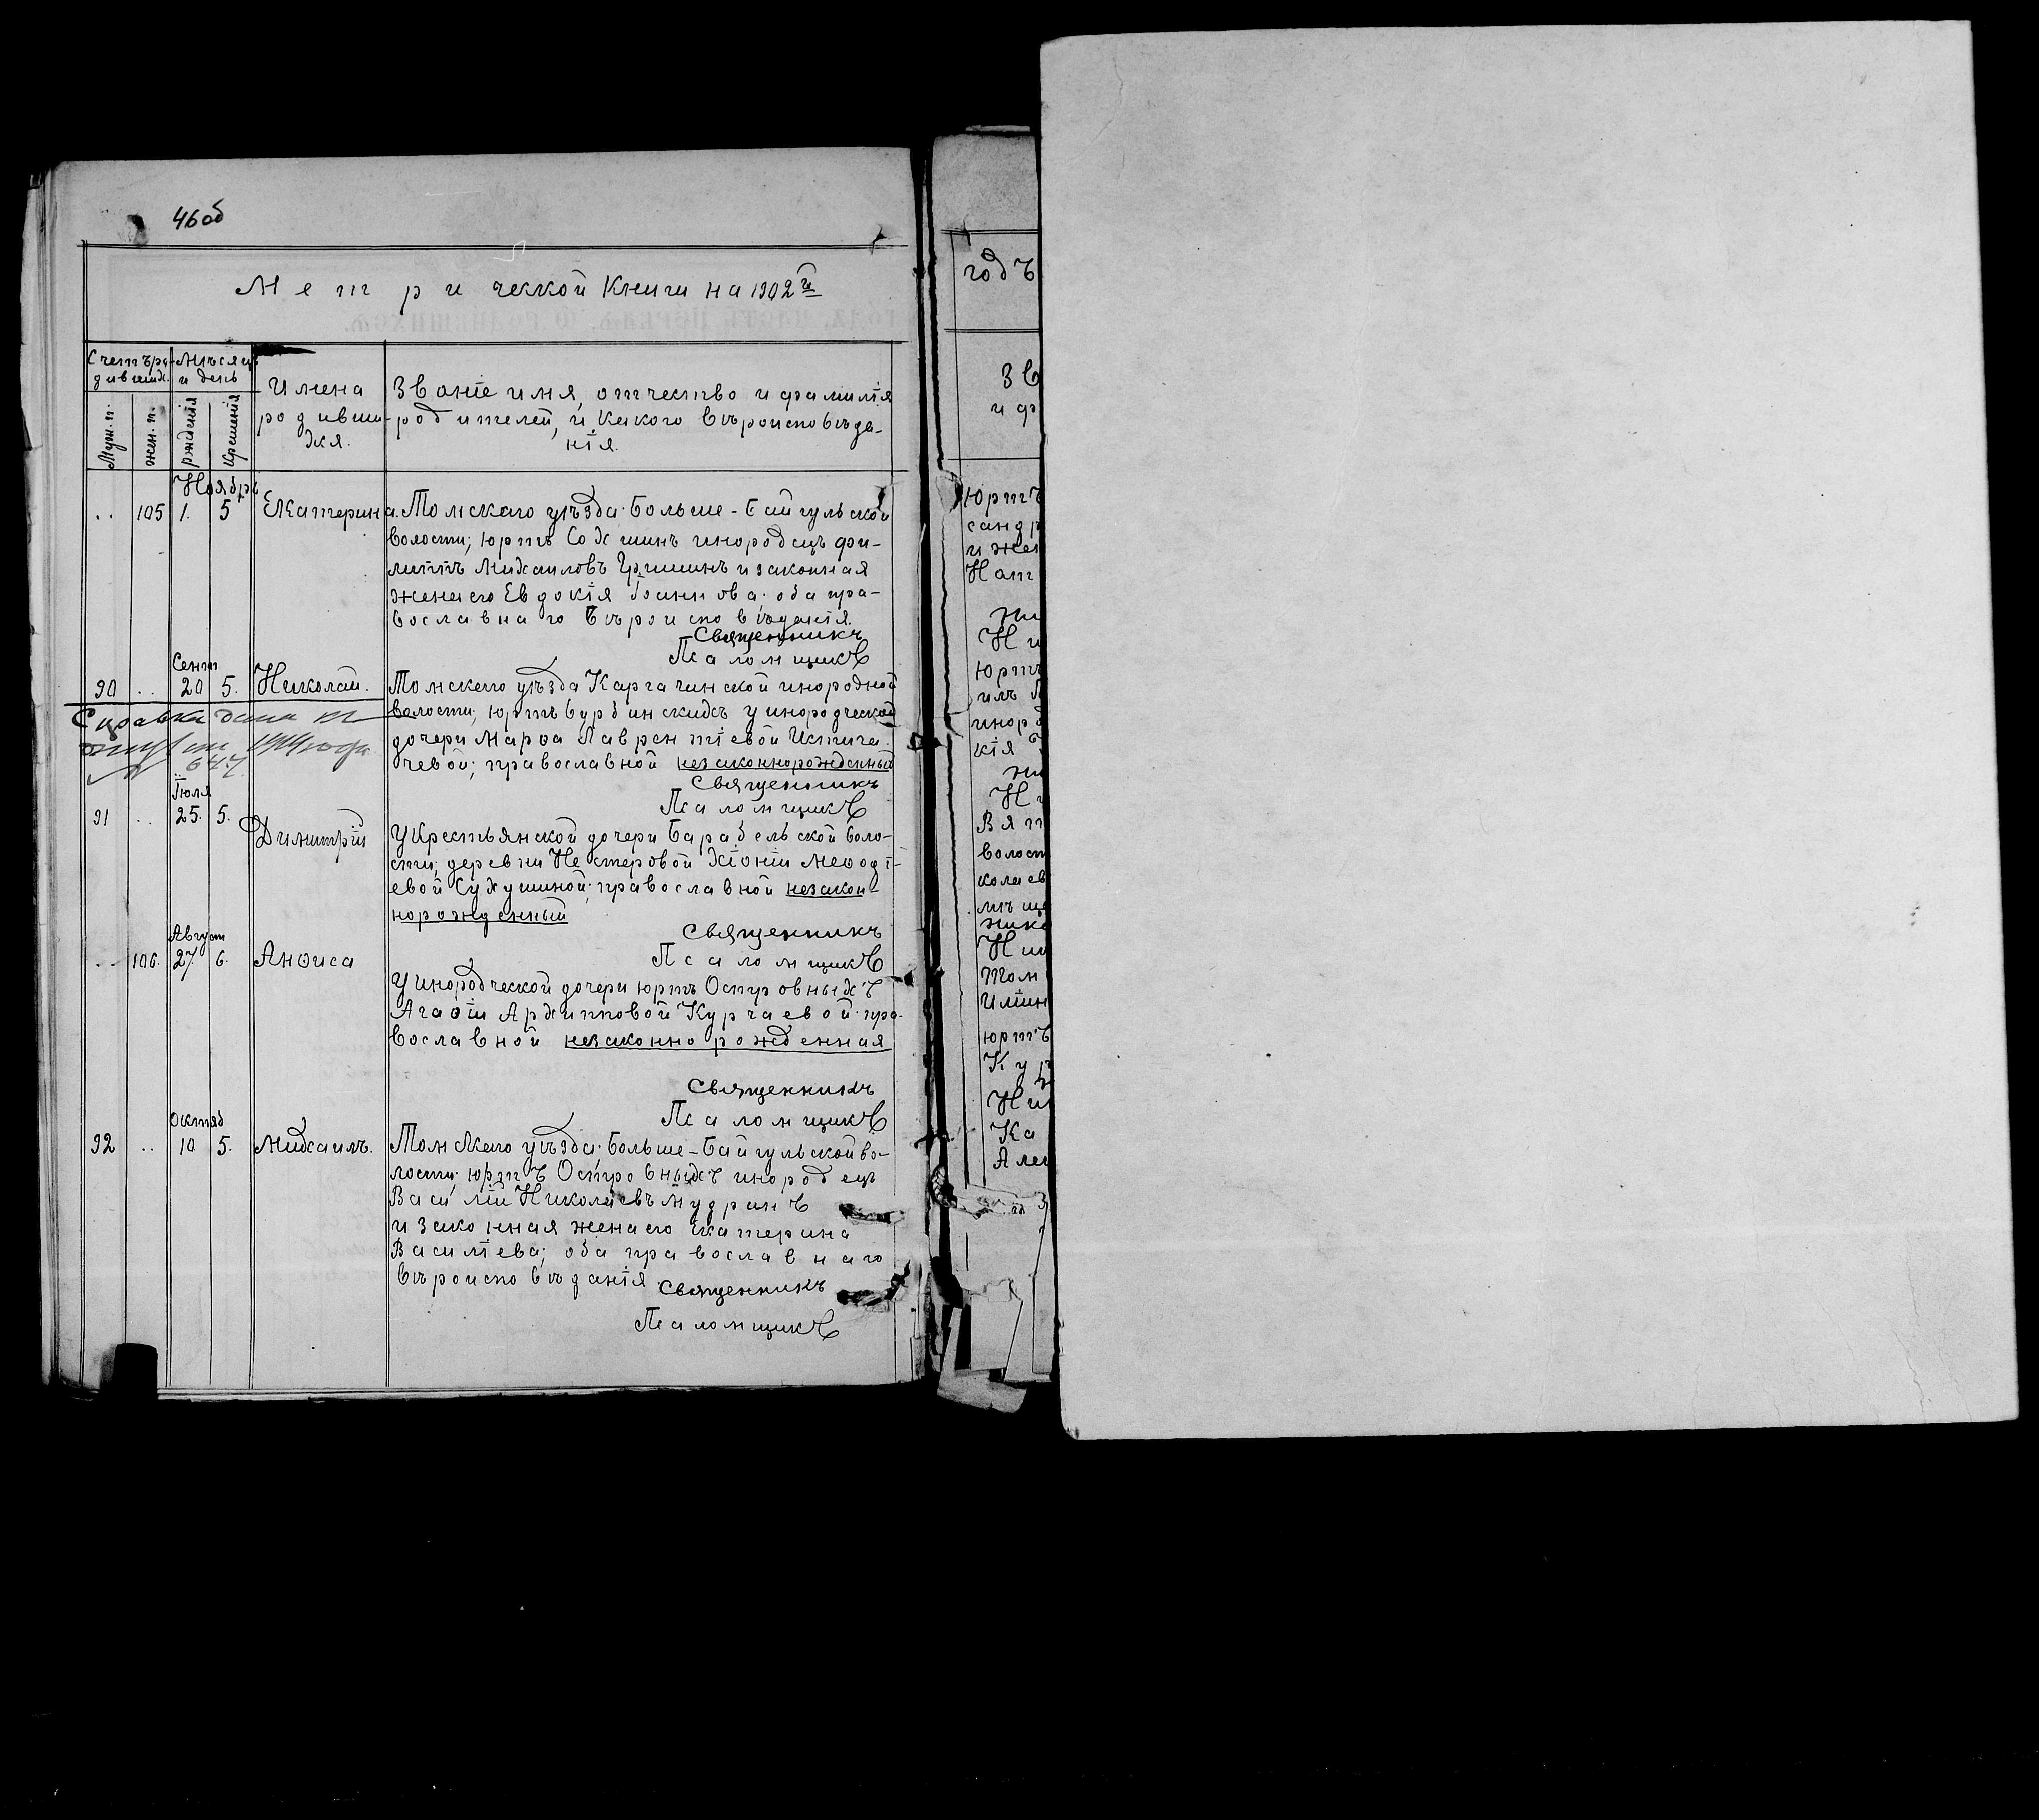 46 об
Метрической Книги на 1902й
Счетъ ро-
дивших.
Мѣсяцъ
и день
Муж. п.
жен. п.
рждения
Крещенія
Имена
родивши-
хся.
Званіе имя, отчество и фамилія
родителей, и какого вѣроисповѣда-
нія.
Ноябрь
.. 105 1. 5 Екатерина. Томскаго уѣзда Больше-Байгульской
волости; юртъ Сохшинъ инородецъ Фи-
липпъ Михаиловъ Гришинъ и законная
жена его Евдокія Іоаннова; оба пра-
вославнаго вѣроисповѣданія.
Священникъ
Псаломщикъ
Сент
90 .. 20 5. Николай. Томскаго уѣзда Каргачинской инородной
Справка дана
волости; юртъ Бурбинскихъ у инородческой
1914 года
дочери Марѳа Лаврентіевой
647
чевой; православной незаконнорожденный
Священникъ
Псаломщикъ
Іюля
91 .. 25. 5. Димитрій
У Крестьянской дочери Парабельской воло-
сти; деревни Нестеровой Хіоніи Меѳоді-
евой Сухушиной; православной незакон-
норожденный
Священникъ
Псаломщикъ
Август
.. 106. 27. 6. Анѳиса
У инородческой дочери юртъ Островныхъ
Агаѳіи Архипповой Курчаевой пра-
вославной незаконнорожденная
Священникъ
Псаломщикъ
Октяб
92 .. 10 5. Михаилъ. Томскаго уѣзда Больше-Байгульской во-
лости; юртъ Островныхъ инородецъ
Василій Николаевъ Мудринъ
и законная жена его Екатерина
Василіева; оба православнаго
вѣроисповѣданія.
Священникъ
Псаломщикъ
годъ
Зв
и ф
юртъ
сандр
и жен
Нат
Ни
юртъ
инор
кія
Вят
волост
колаев
Том
юртъ
Ка